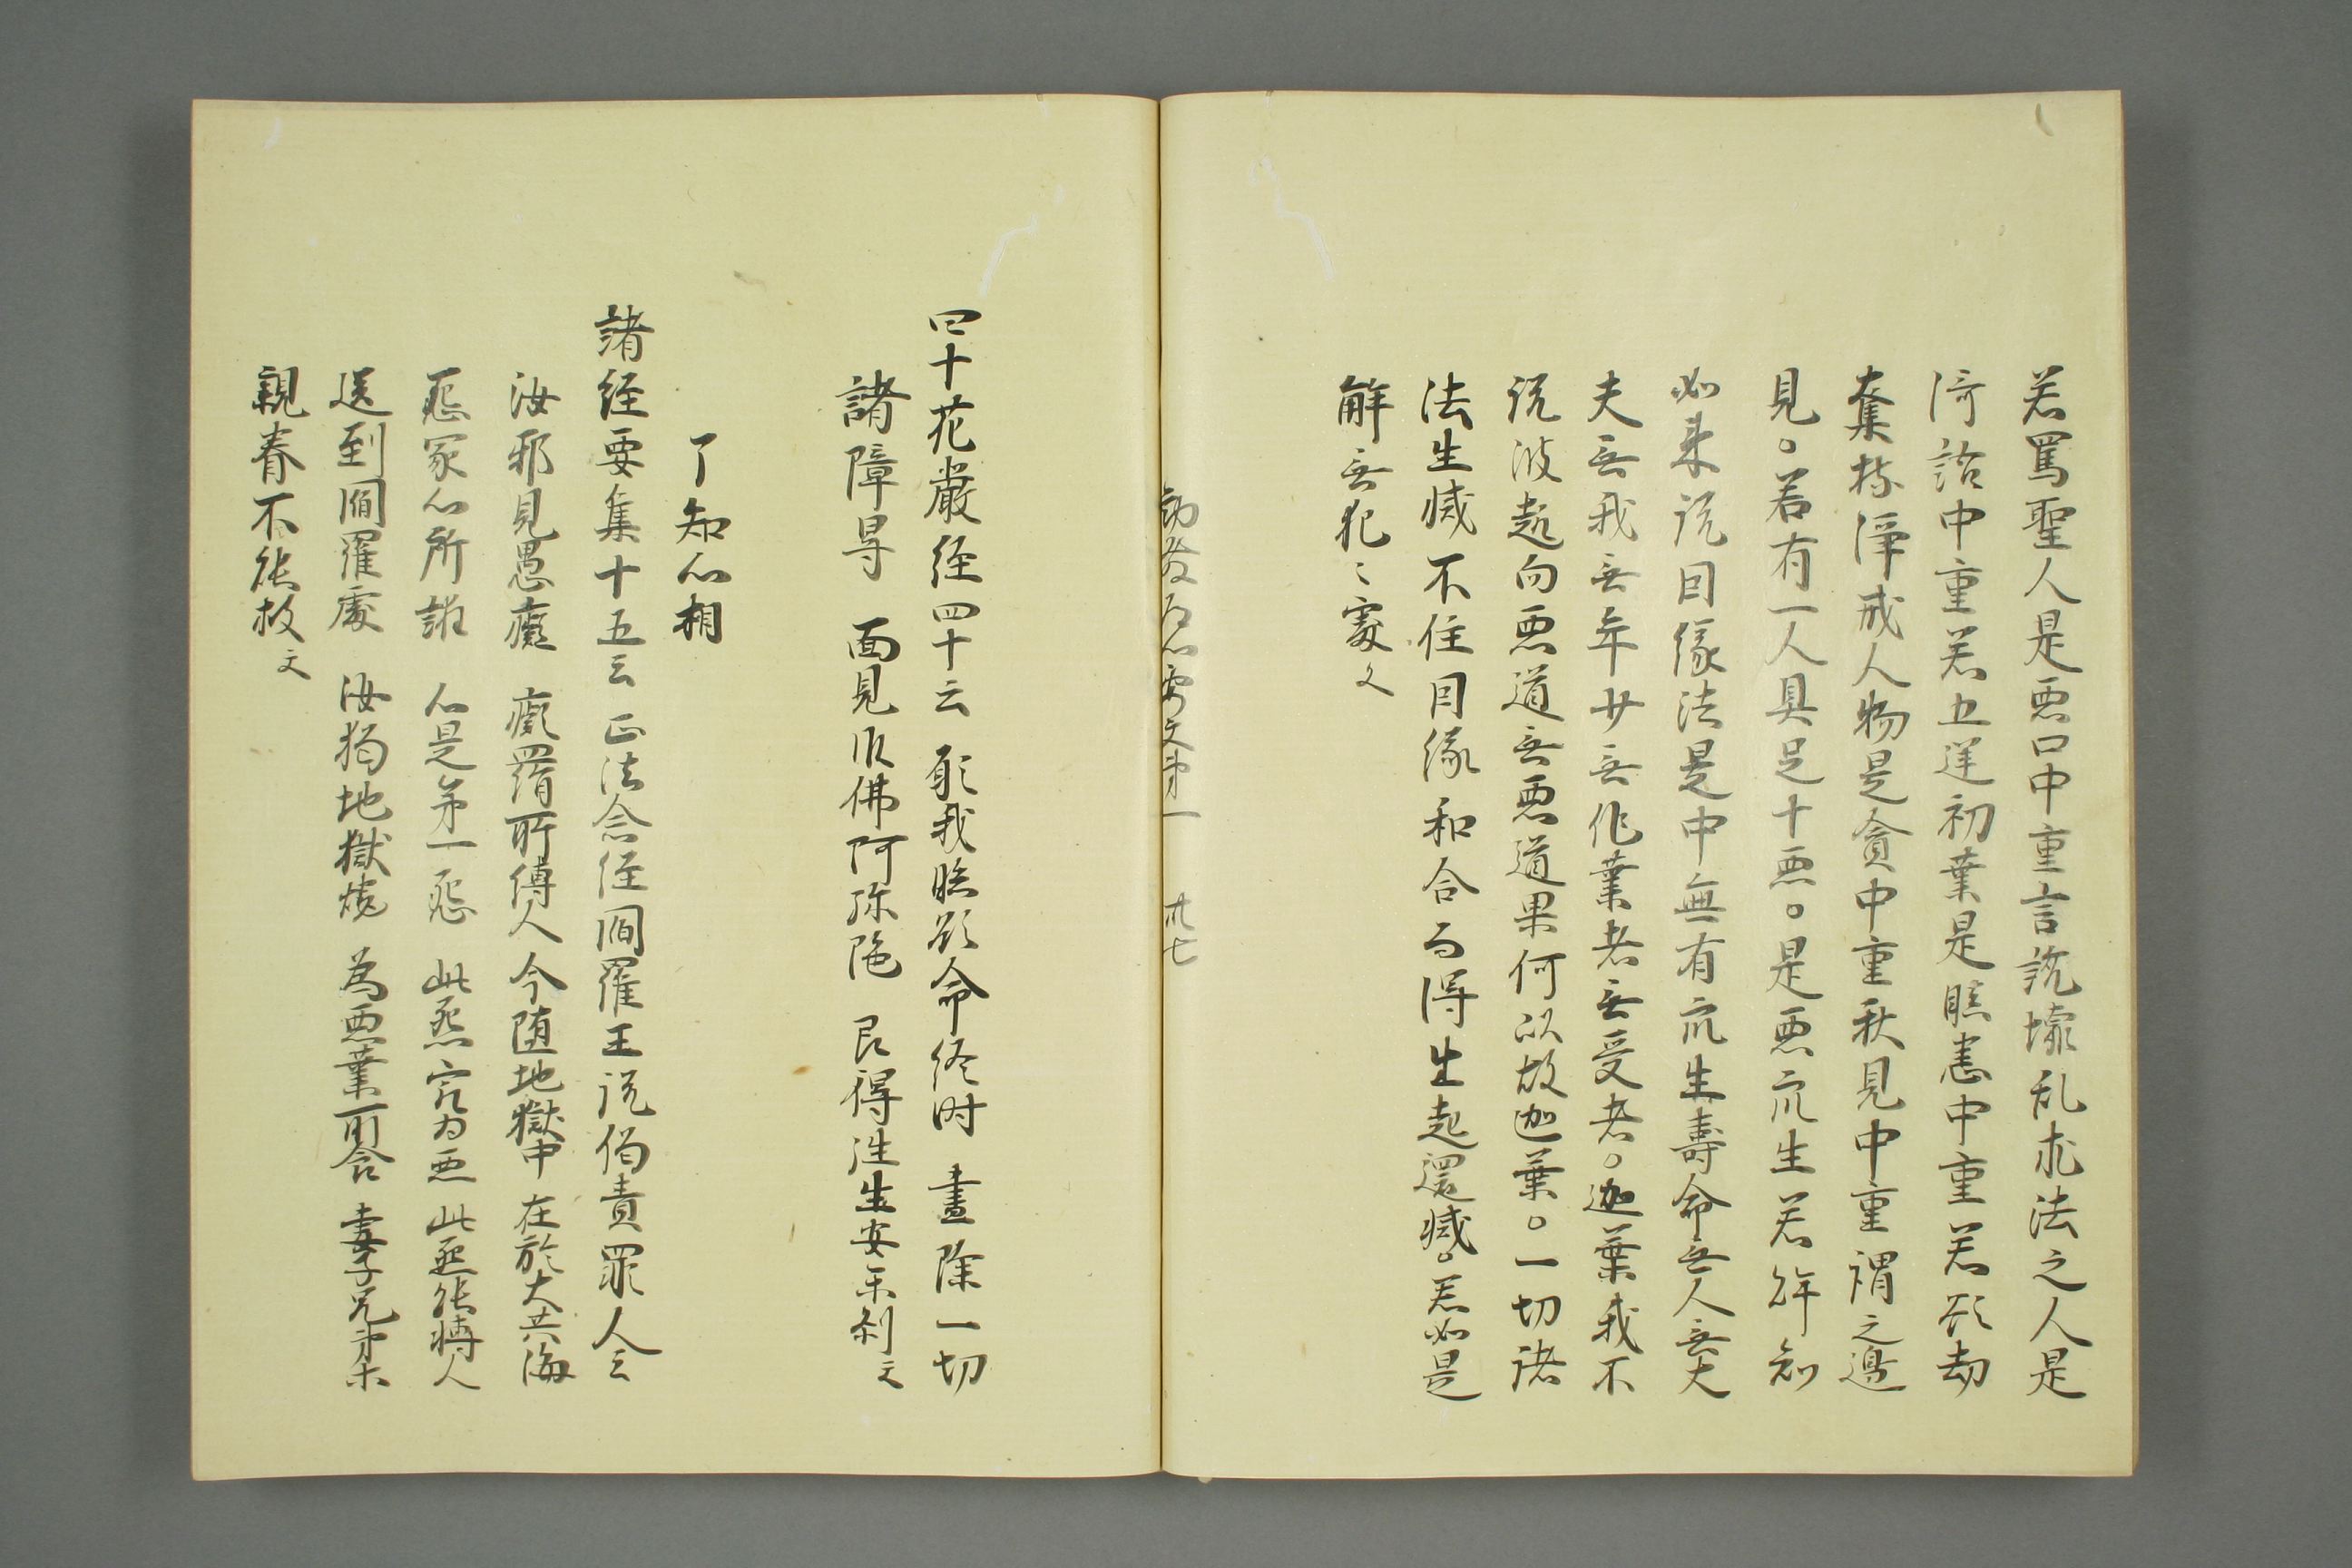 若罵聖人是悪口中重言説壊乱求法之人是
綺語中重若五逆初業是瞋恚中重若欲劫
奪持浄戒人物是貪中重耶見中重謂之邊
見。若有一人具足十悪。是悪衆生若解知
如来説因縁法是中無有衆生壽命无人无丈
夫无我无年少无作業者无受者。迦葉我不
説彼趣向悪道无悪道果何以故迦葉。一切諸
法生滅不住因縁和合而得生起還滅。若如是
解无犯〻處文
勧發 心要文第一 卅七
四十花嚴経四十云 願我臨欲命終時 盡除一切
諸障㝵 面見彼佛阿弥陀 即得往生安楽刹文
了知心相
諸経要集十五云 正法念経閻羅王説偈責罪人云
汝邪見愚癡 癡羂所縛人 今随地獄中 在於大苦海
怨家心所誑 心是第一怨 此怨㝡為悪 此怨能縛人
送到閻羅處 汝獨地獄焼 為悪業所食 妻子兄弟等
親眷不能救文